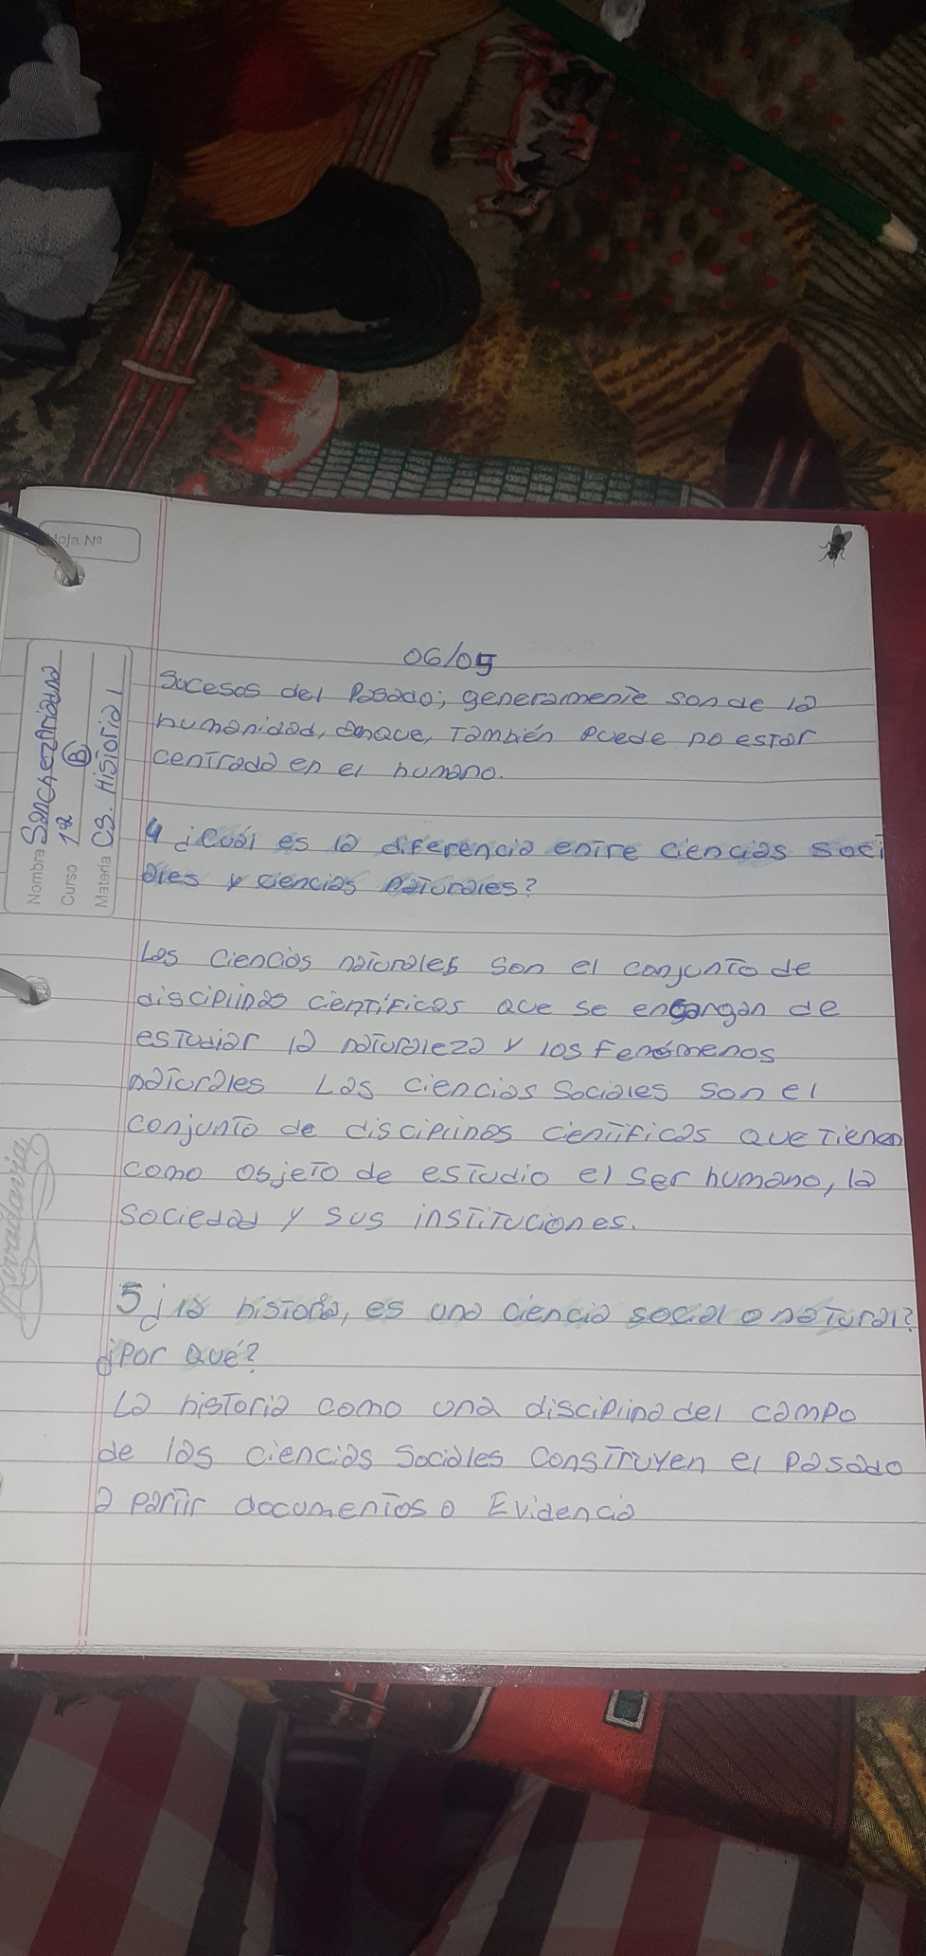 Hoja Nº
Nombre Sanchez Ariadna
Curso 1º B
Materia CS. Historia
Rivadavia
06/05
Sucesos del Pasado; generamente son de la
humanidad, aunque, También puede no estar
centrada en el humano.
4 ¿Cuál es la diferencia entre ciencias soci
ales y ciencias naturales?
Las ciencias naturales son el conjunto de
disciplinas científicas que se encargan de
estudiar la naturaleza y los fenómenos
naturales Las ciencias Sociales son el
conjunto de disciplinas científicas que tienen
como osjeto de estudio el ser humano, la
sociedad y sus instituciones.
5 ¿la historia, es una ciencia social o natural?
¿Por qué?
La historia como una disciplina del campo
de las ciencias Sociales Construyen el pasado
a partir documentos o Evidencia